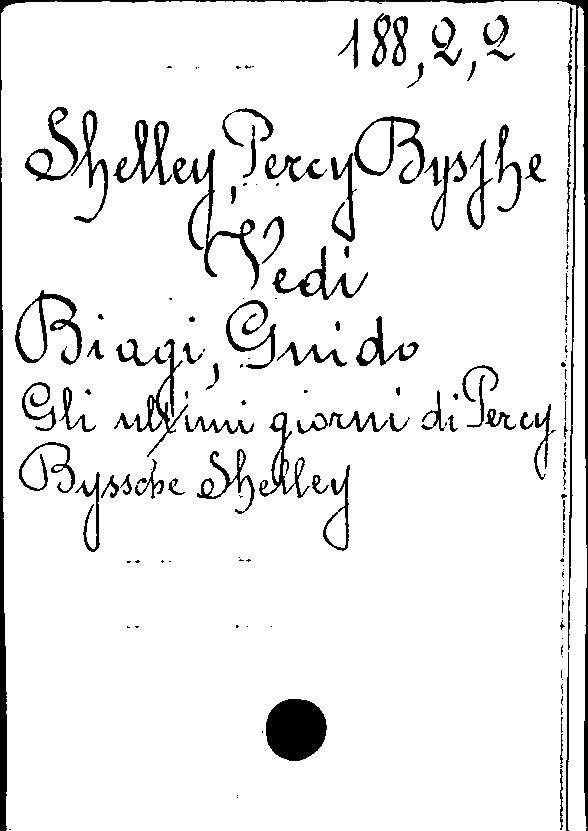 188,2,2
Shelley, Percy Bysshe
Vedi
Biagi, Guido
Gli ultimi giorni di Percy
Byssche Shelley